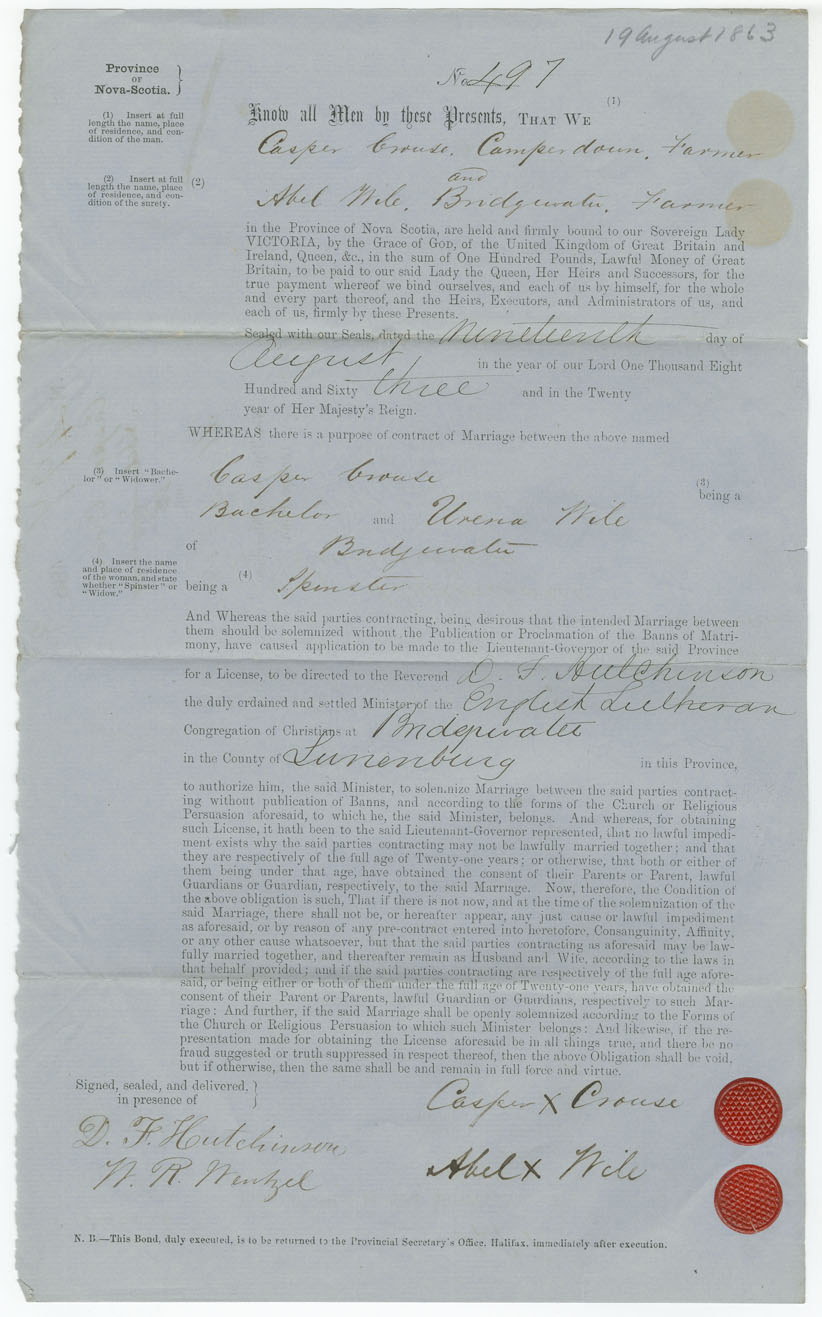 19 August 1863
Province
OF
Nova-Scotia.
No. 497
(1) Insert at full
length the name, place
of residence, and con-
dition of the man.
Know all Men by these Presents, THAT WE (1)
Casper Crouse. Camperdown. Farmer
and
(2) Insert at full
length the name, place
of residence, and con-
dition of the surety.
(2)
Abel Wile. Bridgewater. Farmer
in the Province of Nova Scotia, are held and firmly bound to our Sovereign Lady
VICTORIA, by the Grace of GOD, of the United Kingdom of Great Britain and
Ireland, Queen, &c., in the sum of One Hundred Pounds, Lawful Money of Great
Britain, to be paid to our said Lady the Queen, Her Heirs and Successors, for the
true payment whereof we bind ourselves, and each of us by himself, for the whole
and every part thereof, and the Heirs, Executors, and Administrators of us, and
each of us, firmly by these Presents.
Sealed with our Seals, dated the Nineteenth day of
August in the year of our Lord One Thousand Eight
Hundred and Sixty three and in the Twenty
year of Her Majesty's Reign.
WHEREAS there is a purpose of contract of Marriage between the above named
(3) Insert "Bache-
lor" or "Widower."
Casper Crouse (3)
being a
Bachelor and Urena Wile
of Bridgewater
(4) Insert the name
and place of residence
of the woman, and state
whether "Spinster" or
"Widow."
being a (4) Spinster
And Whereas the said parties contracting, being desirous that the intended Marriage between
them should be solemnized without the Publication or Proclamation of the Banns of Matri-
mony, have caused application to be made to the Lieutenant-Governor of the said Province
for a License, to be directed to the Reverend D. F. Hutchinson
the duly ordained and settled Minister of the English Lutheran
Congregation of Christians at Bridgewater
in the County of Lunenburg in this Province,
to authorize him, the said Minister, to solemnize Marriage between the said parties contract-
ing without publication of Banns, and according to the forms of the Church or Religious
Persuasion aforesaid, to which he, the said Minister, belongs. And whereas, for obtaining
such License, it hath been to the said Lieutenant-Governor represented, that no lawful impedi-
ment exists why the said parties contracting may not be lawfully married together; and that
they are respectively of the full age of Twenty-one years; or otherwise, that both or either of
them being under that age, have obtained the consent of their Parents or Parent, lawful
Guardians or Guardian, respectively, to the said Marriage. Now, therefore, the Condition of
the above obligation is such, That if there is not now, and at the time of the solemnization of the
said Marriage, there shall not be, or hereafter appear, any just cause or lawful impediment
as aforesaid, or by reason of any pre-contract entered into heretofore, Consanguinity, Affinity,
or any other cause whatsoever, but that the said parties contracting as aforesaid may be law-
fully married together, and thereafter remain as Husband and Wife, according to the laws in
that behalf provided; and if the said parties contracting are respectively of the full age afore-
said, or being either or both of them under the full age of Twenty-one years, have obtained the
consent of their Parent or Parents, lawful Guardian or Guardians, respectively to such Mar-
riage: And further, if the said Marriage shall be openly solemnized according to the Forms of
the Church or Religious Persuasion to which such Minister belongs: And likewise, if the re-
presentation made for obtaining the License aforesaid be in all things true, and there be no
fraud suggested or truth suppressed in respect thereof, then the above Obligation shall be void,
but if otherwise, then the same shall be and remain in full force and virtue.
Signed, sealed, and delivered,
in presence of
Casper X Crouse
D. F. Hutchinson
W. R. Wentzel
Abel X Wile
N. B.—This Bond, duly executed, is to be returned to the Provincial Secretary's Office, Halifax, immediately after execution.